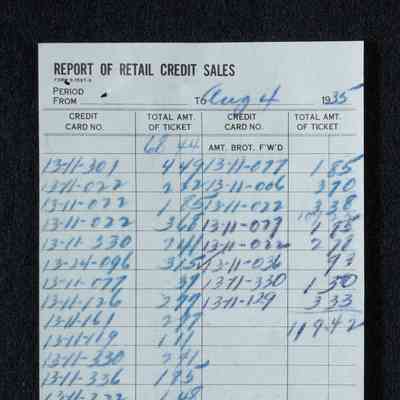 REPORT OF RETAIL CREDIT SALES
PERIOD
FROM TO Aug 4 1935
CREDIT CARD NO. TOTAL AMT. OF TICKET CREDIT CARD NO. TOTAL AMT. OF TICKET
68 44 AMT. BROT. F'W'D
13-11-301 449 13-11-077 185
1311-022 13-11-006 370
13-11-022 185 13-11-022 338
13-11-022 368 13-11-077 185
13-11-330 241 13-11-022 278
13-24-096 315 13-11-036 93
13-11-077 1311-330 150
13-11-126 277 1311-129 333
13-11-161 119 42
13-11-119 111
13-11-330
13-11-336 185
148